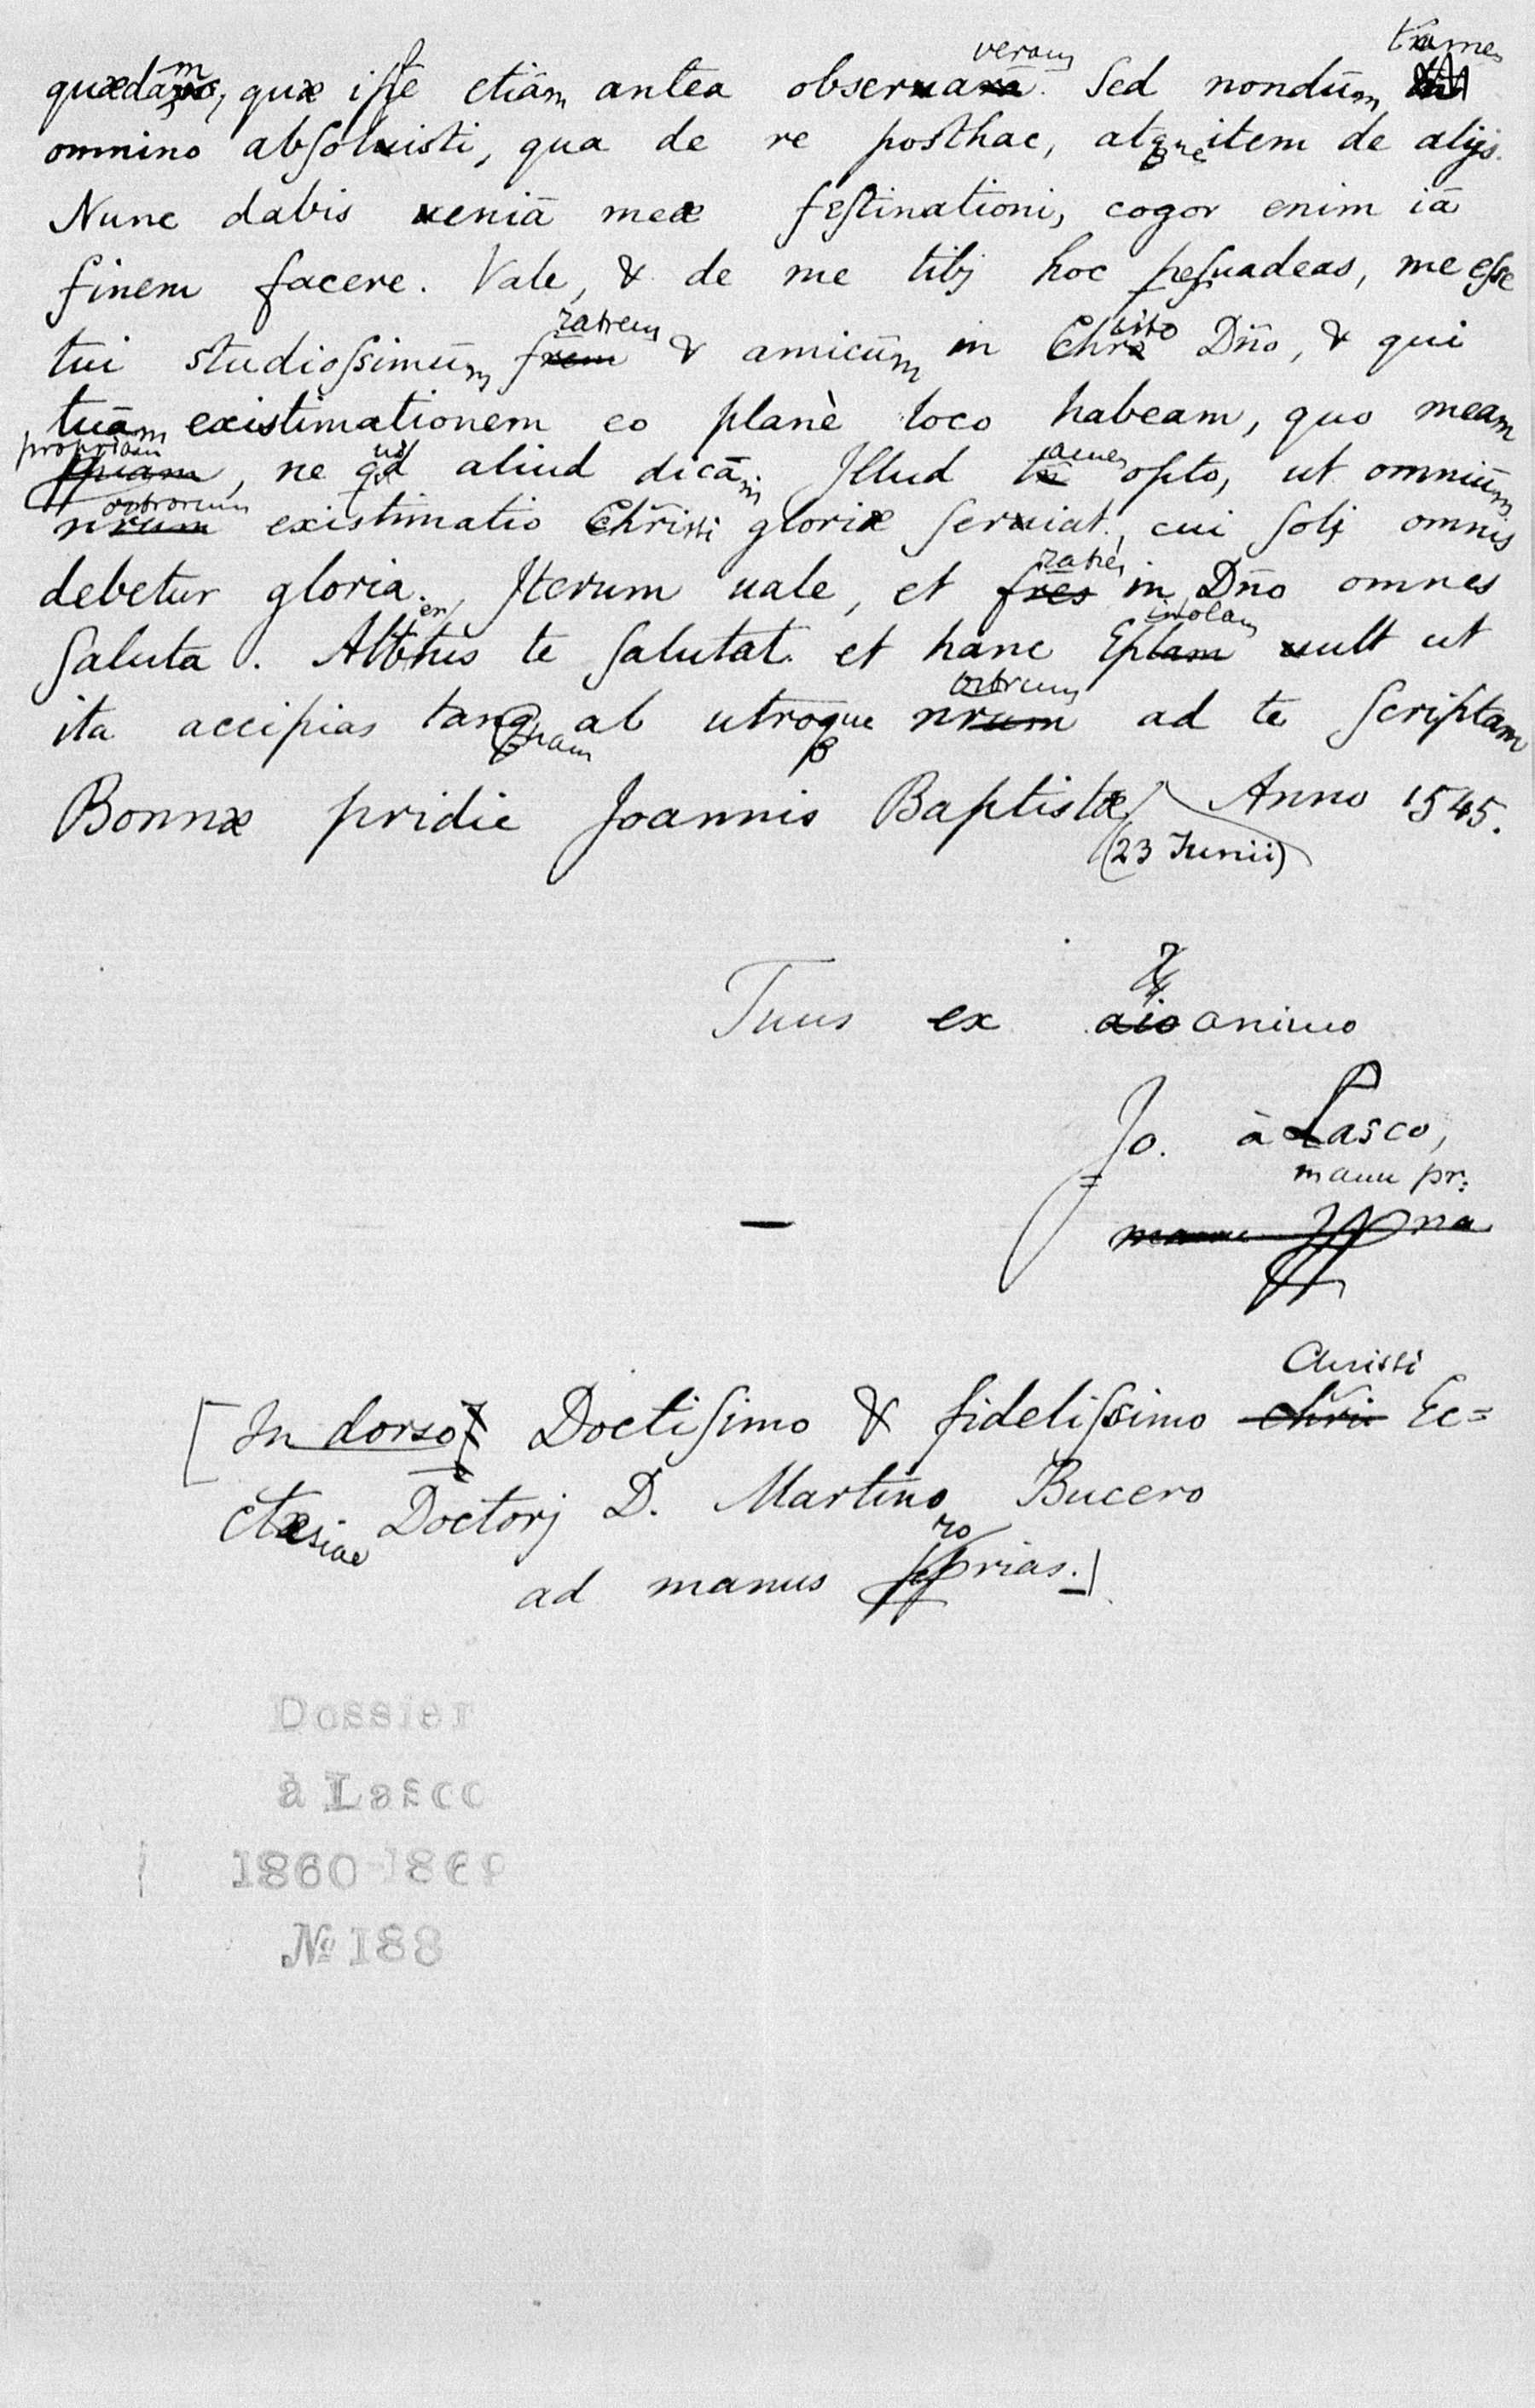 quædam, quæ ipse etiām antea obseruaveram. Sed nondūm tamen
omnino absoluisti, qua de re posthac, atque item de alijs.
Nunc dabis ueniā meæ festinationi, cogor enim iā
finem facere. Vale, & de me tibj hoc persuadeas, me esse
tui studiosissimūm fratrem & amicūm in Christo Dño, & qui
tuām existimationem eo planè loco habeam, quo meam
propriam, ne quid aliud dicām. Illud tamen opto, ut omniūm
nostrorum existimatio Christi gloriæ seruiat, cui solj omnis
debetur gloria. Iterum uale, et fratres in Dño omnes
saluta. Albertus te salutat et hanc Epistolam uult ut
ita accipias tanquam ab utroque nostrum ad te scriptam
Bonnæ pridie Joannis Baptistæ Anno 1545.
(23 Junii)
Tuus ex animo
Jo. à Lasco,
manu pr:
[In dorso] Doctissimo & fidelissimo Christi Ec=
clæsiae Doctorj D. Martino Bucero
ad manus proprias.]
Dossier
à Lasco
1860
№ 188